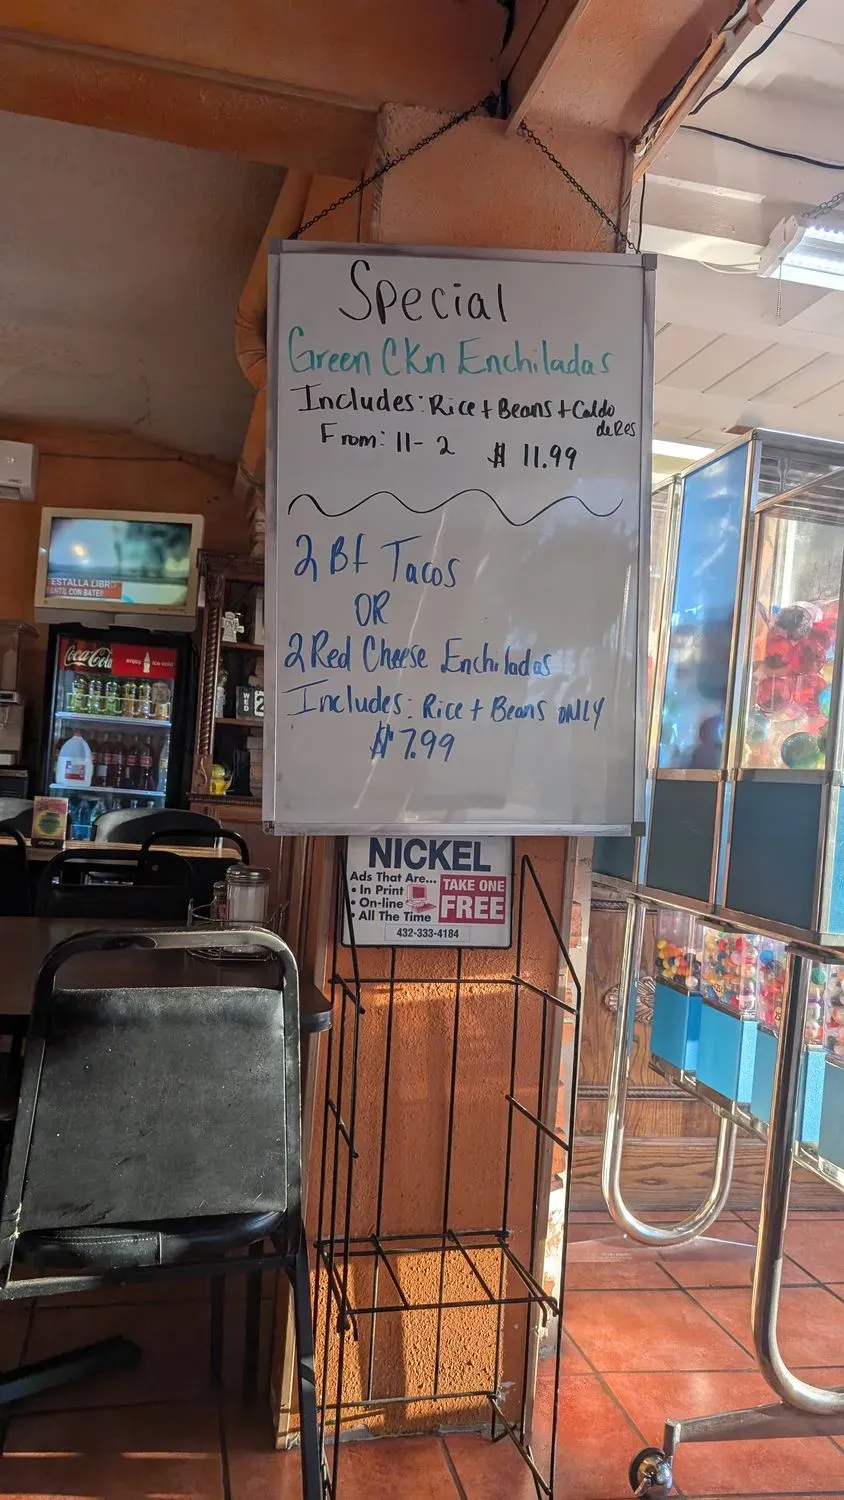 Special
Green CKn Enchiladas
Includes: Rice + Beans + Caldo
de Res
From: 11-2 $ 11.99
2 Bf Tacos
OR
2 Red Cheese Enchiladas
Includes: Rice + Beans ONLY
$7.99
ESTALLA LIBR
ANTIL CON BATER
Coca-Cola
enjoy ice cold
LOVE
WED
2
NICKEL
Ads That Are...
• In Print
• On-line
• All The Time
TAKE ONE
FREE
432-333-4184